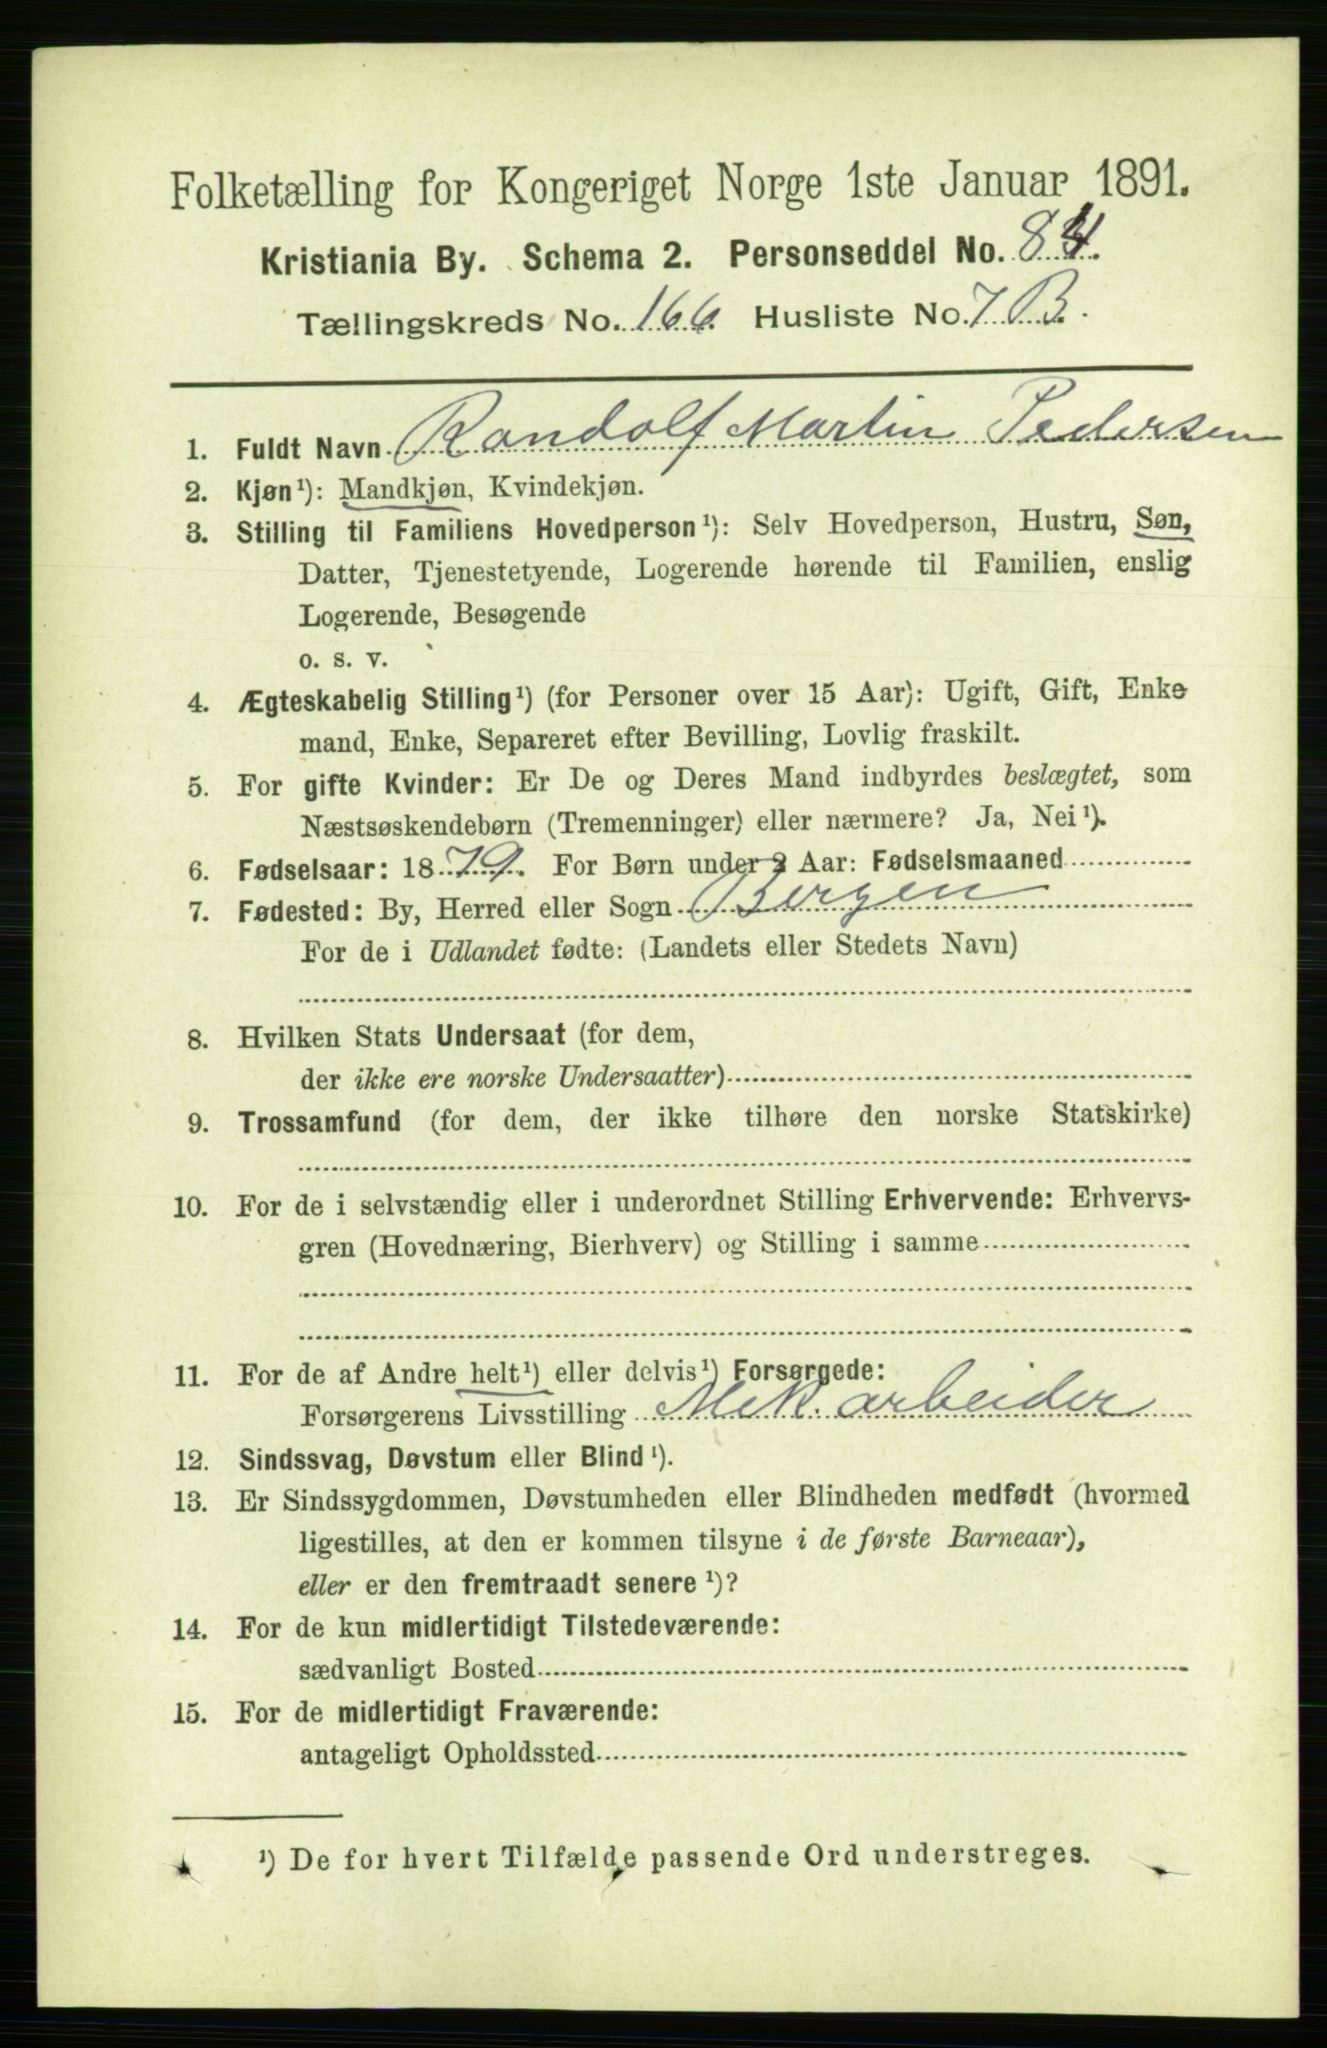 Folketælling for Kongeriget Norge 1ste Januar 1891.
Kristiania By. Schema 2. Personseddel No. 84.
Tællingskreds No. 166. Husliste No. 7 B.
1. Fuldt Navn Randolf Martin Pedersen
2. Kjøn¹): Mandkjøn, Kvindekjøn.
3. Stilling til Familiens Hovedperson¹): Selv Hovedperson, Hustru, Søn,
Datter, Tjenestetyende, Logerende hørende til Familien, enslig
Logerende, Besøgende
o. s. v.
4. Ægteskabelig Stilling¹) (for Personer over 15 Aar): Ugift, Gift, Enke
mand, Enke, Separeret efter Bevilling, Lovlig fraskilt.
5. For gifte Kvinder: Er De og Deres Mand indbyrdes beslægtet, som
Næstsøskendebørn (Tremenninger) eller nærmere? Ja, Nei¹).
6. Fødselsaar: 1879. For Børn under 2 Aar: Fødselsmaaned
7. Fødested: By, Herred eller Sogn Bergen
For de i Udlandet fødte: (Landets eller Stedets Navn)
8. Hvilken Stats Undersaat (for dem,
der ikke ere norske Undersaatter)
9. Trossamfund (for dem, der ikke tilhøre den norske Statskirke)
10. For de i selvstændig eller i underordnet Stilling Erhvervende: Erhvervs-
gren (Hovednæring, Bierhverv) og Stilling i samme
11. For de af Andre helt¹) eller delvis¹) Forsørgede:
Forsørgerens Livsstilling Mek. arbeider
12. Sindssvag, Døvstum eller Blind¹).
13. Er Sindssygdommen, Døvstumheden eller Blindheden medfødt (hvormed
ligestilles, at den er kommen tilsyne i de første Barneaar),
eller er den fremtraadt senere¹)?
14. For de kun midlertidigt Tilstedeværende:
sædvanligt Bosted
15. For de midlertidigt Fraværende:
antageligt Opholdssted
¹) De for hvert Tilfælde passende Ord understreges.